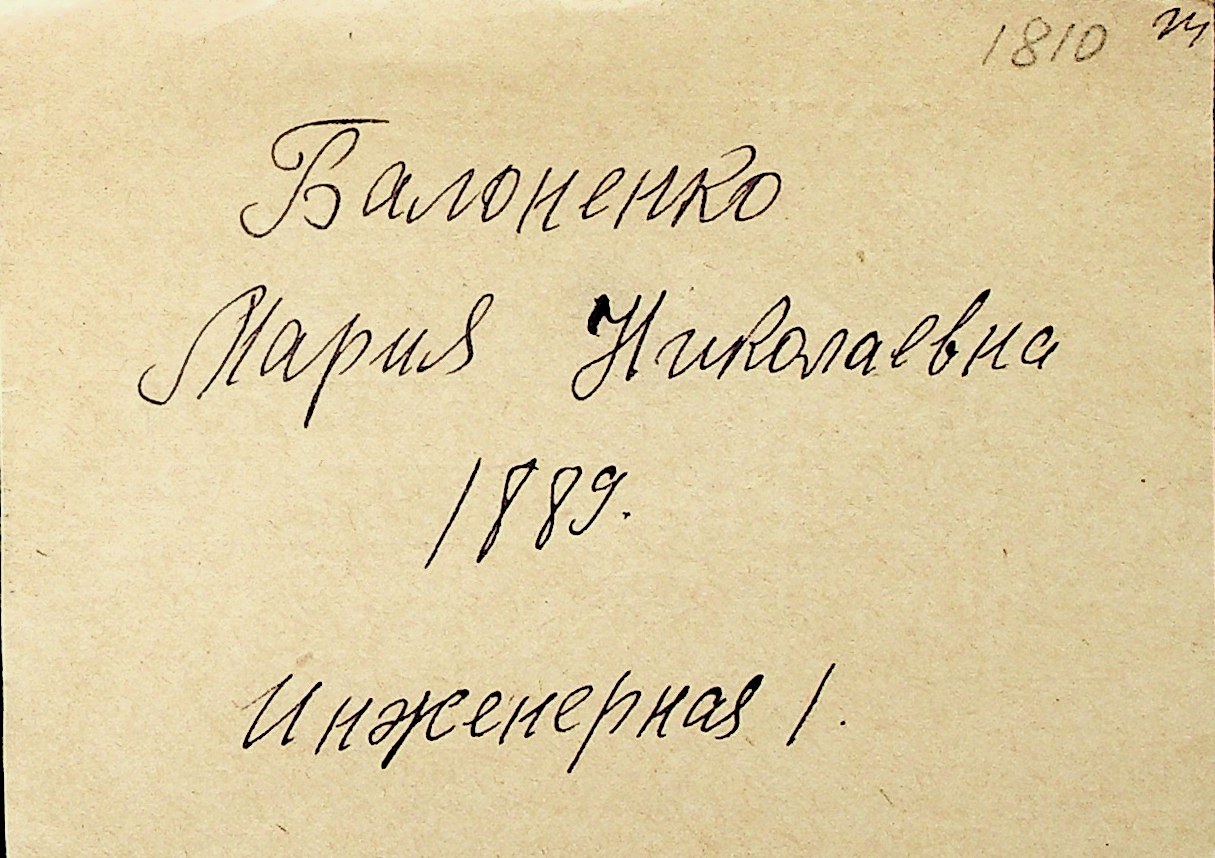 1810
Балоненко
Мария Николаевна
1889.
Инженерная 1.